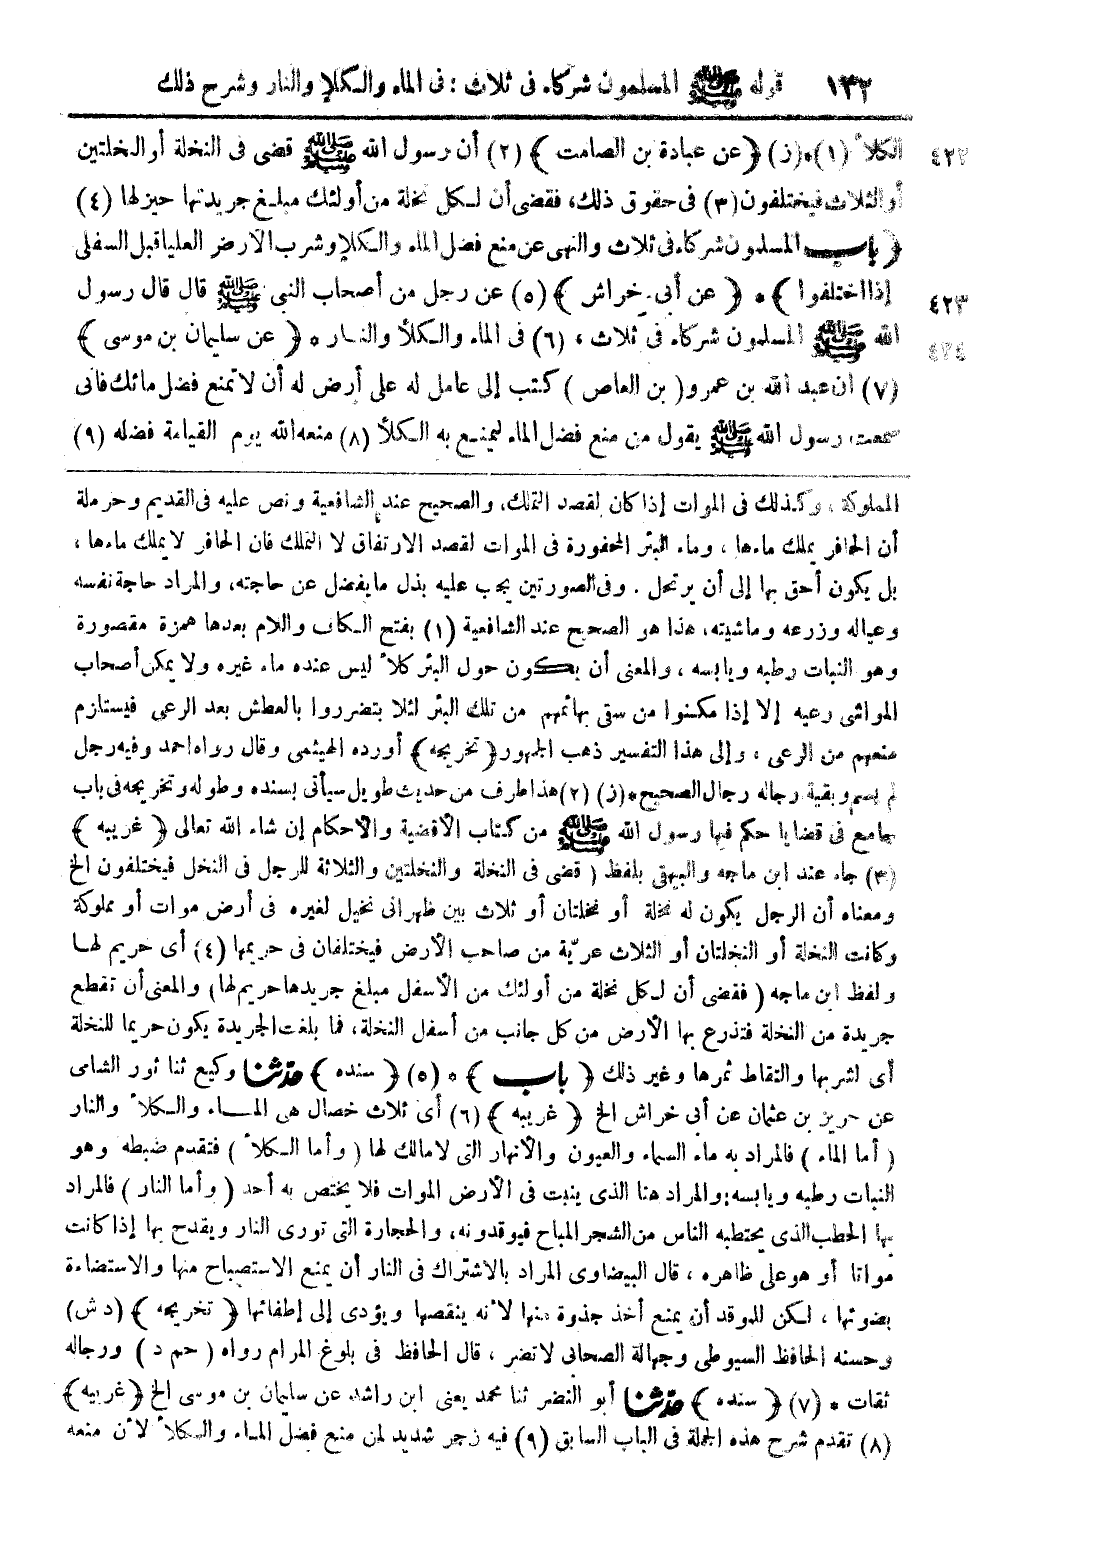 ١٣٢ قوله ﷺ المسلمون شركاء فى ثلاث : فى الماء والكلإ والنار وشرح ذلك
٤٢٢ الكلأ (١)*(ز) ﴿عن عبادة بن الصامت﴾ (٢) أن رسول الله ﷺ قضى فى النخلة أو النخلتين
أو الثلاث فيختلفون (٣) فى حقوق ذلك، فقضى أن لكل نخلة من أولئك مبلغ جريدتها حيز لها (٤)
﴿باب المسلمون شركاء فى ثلاث والنهى عن منع فضل الماء والكلإ وشرب الأرض العليا قبل السفلى
٤٢٣ إذا اختلفوا﴾ * ﴿عن أبى خراش﴾ (٥) عن رجل من أصحاب النبى ﷺ قال قال رسول
٤٢٤ الله ﷺ المسلمون شركاء فى ثلاث ، (٦) فى الماء والكلأ والنار * ﴿عن سليمان بن موسى﴾
(٧) ان عبد الله بن عمرو (بن العاص) كتب إلى عامل له على أرض له أن لا تمنع فضل مائك فانى
سمعت رسول الله ﷺ يقول من منع فضل الماء ليمنع به الكلأ (٨) منعه الله يوم القيامة فضله (٩)
المملوكة ، وكذلك فى الموات إذا كان لقصد التملك، والصحيح عند الشافعية ونص عليه فى القديم وحرملة
أن الحافر يملك ماءها ، وماء البئر المحفورة فى الموات لقصد الارتفاق لا التملك فان الحافر لا يملك ماءها ،
بل يكون أحق بها إلى أن يرتحل . وفى الصورتين يجب عليه بذل ما يفضل عن حاجته، والمراد حاجة نفسه
وعياله وزرعه وماشيته، هذا هو الصحيح عند الشافعية (١) بفتح الكاف واللام بعدها همزة مقصورة
وهو النبات رطبه ويابسه ، والمعنى أن يكون حول البئر كلأ ليس عنده ماء غيره ولا يمكن أصحاب
المواشى رعيه إلا إذا مكنوا من سقى بهائمهم من تلك البئر لئلا يتضرروا بالعطش بعد الرعى فيستلزم
منعهم من الرعى ، وإلى هذا التفسير ذهب الجمهور ﴿تخريجه﴾ أورده الهيثمى وقال رواه احمد وفيه رجل
لم يسم وبقية رجاله رجال الصحيح *(ز) (٢) هذا طرف من حديث طويل سيأتى بسنده وطوله وتخريجه فى باب
جامع فى قضايا حكم فيها رسول الله ﷺ من كتاب الأقضية والأحكام إن شاء الله تعالى ﴿غريبه﴾
(٣) جاء عند ابن ماجه والبيهقى بلفظ (قضى فى النخلة والنخلتين والثلاثة للرجل فى النخل فيختلفون الخ
ومعناه أن الرجل يكون له نخلة أو نخلتان أو ثلاث بين ظهرانى نخيل لغيره فى أرض موات أو مملوكة
وكانت النخلة أو النخلتان أو الثلاث عريّة من صاحب الأرض فيختلفان فى حريمها (٤) أى حريم لها
ولفظ ابن ماجه (فقضى أن لكل نخلة من أولئك من الأسفل مبلغ جريدها حريم لها) والمعنى أن تقطع
جريدة من النخلة فتذرع بها الأرض من كل جانب من أسفل النخلة، فما بلغت الجريدة يكون حريما للنخلة
أى لشربها والتقاط ثمرها وغير ذلك ﴿باب﴾ * (٥) ﴿سنده﴾ حدثنا وكيع ثنا ثور الشامى
عن حريز بن عثمان عن أبى خراش الخ ﴿غريبه﴾ (٦) أى ثلاث خصال هى الماء والكلأ والنار
(أما الماء) فالمراد به ماء السماء والعيون والأنهار التى لا مالك لها (وأما الكلأ) فتقدم ضبطه وهو
النبات رطبه ويابسه؛ والمراد هنا الذى ينبت فى الأرض الموات فلا يختص به أحد (وأما النار) فالمراد
بها الحطب الذى يحتطبه الناس من الشجر المباح فيوقدونه، والحجارة التى تورى النار ويقدح بها إذا كانت
مواتا أو هو على ظاهره ، قال البيضاوى المراد بالاشتراك فى النار أن يمنع الاستصباح منها والاستضاءة
بضوئها ، لكن للموقد أن يمنع أخذ جذوة منها لأنه ينقصها ويؤدى إلى إطفائها ﴿تخريجه﴾ (د ش)
وحسنه الحافظ السيوطى وجهالة الصحابى لا تضر ، قال الحافظ فى بلوغ المرام رواه (حم د) ورجاله
ثقات * (٧) ﴿سنده﴾ حدثنا أبو النضر ثنا محمد يعنى ابن راشد عن سليمان بن موسى الخ ﴿غريبه﴾
(٨) تقدم شرح هذه الجملة فى الباب السابق (٩) فيه زجر شديد لمن منع فضل الماء والكلأ لأن منعه